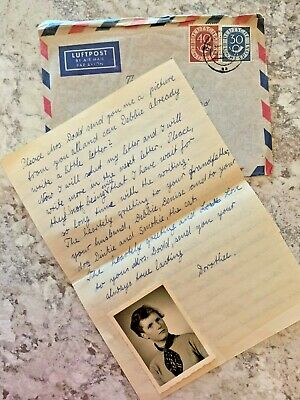 LUFTPOST
BY AIR MAIL
PAR AVION
40
30
Please Mrs. Dodd send you me a picture
from you all and can Debbie already
write a little letter?
Now I will end my letter and I will
write more in the next letter. Please,
not being that I have wait for
so long with the writing.
The heartely greeting to your Grandfather,
your husband, Debbie, Denise and to your
dog Dutie and Smokie the cat.
The heartely greeting and lots Love
to your Mrs. Dodd send you your
always true lasting
Dorothee.